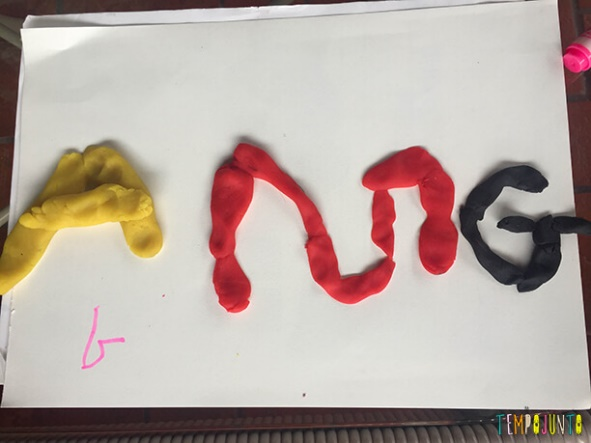 A M G
TEMPOJUNTO